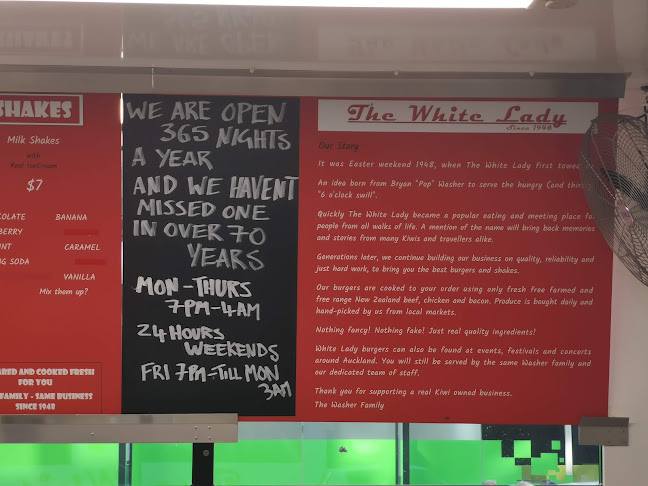 SHAKES
Milk Shakes
with
Real IceCream
$7
BANANA
CARAMEL
VANILLA
Mix them up?
AND COOKED FRESH
FOR YOU
FAMILY - SAME BUSINESS
SINCE 1948
WE ARE OPEN
365 NIGHTS
A YEAR
AND WE HAVENT
MISSED ONE
IN OVER 70
YEARS
MON-THURS
7PM-4AM
24 HOURS
WEEKENDS
FRI 7PM-TILL MON
3AM
The White Lady
Since 1948
Our Story
It was Easter weekend 1948, when The White Lady first
An idea born from Bryan "Pop" Washer to serve the hungry (and
"6 o'clock swill".
Quickly The White Lady became a popular eating and meeting place for
people from all walks of life. A mention of the name will bring back memories
and stories from many Kiwis and travellers alike.
Generations later, we continue building our business on quality, reliability and
just hard work, to bring you the best burgers and shakes.
Our burgers are cooked to your order using only fresh free farmed and
free range New Zealand beef, chicken and bacon. Produce is bought daily and
hand-picked by us from local markets.
Nothing fancy! Nothing fake! Just real quality ingredients!
White Lady burgers can also be found at events, festivals and concerts
around Auckland. You will still be served by the same Washer family and
our dedicated team of staff.
Thank you for supporting a real Kiwi owned business.
The Washer Family